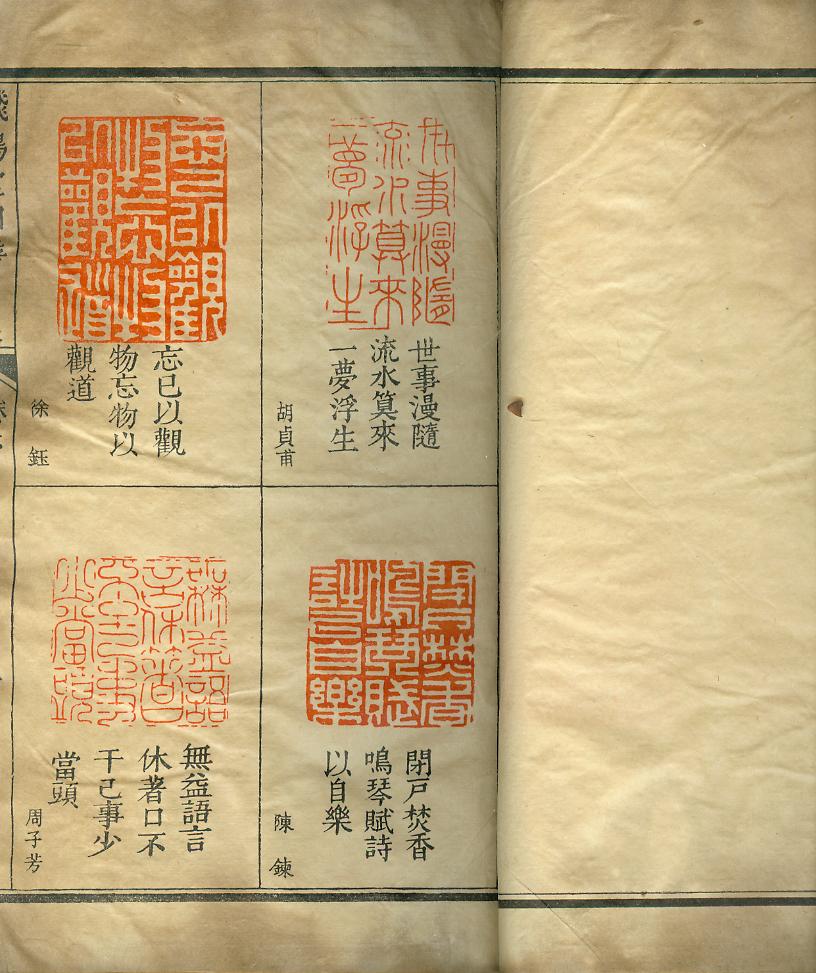 世事漫隨
流水算來
一夢浮生
胡貞甫
忘已以觀
物忘物以
觀道
徐鈺
閉戸焚香
鳴琴賦詩
以自樂
陳鍊
無益語言
休著口不
干己事少
當頭
周子芳